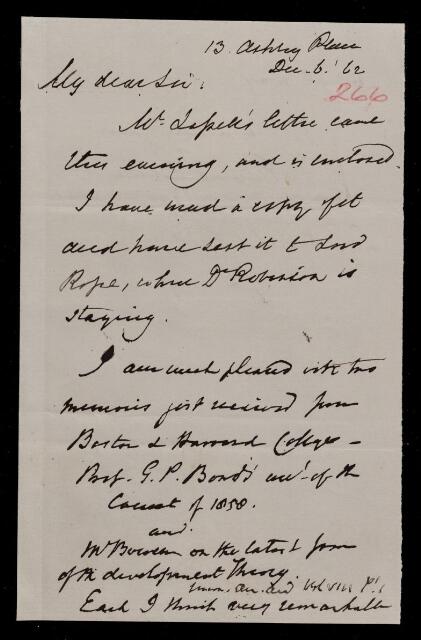 13. Ashley Place
Dec. 6. '62
266
My dear Sir,
Mr Lassell's letter came
this evening, and is enclosed.
I have made a copy of it
and have sent it to Lord
Rosse, where Dr Robinson is
staying.
I am much pleased with two
memoirs just received from
Boston & Harvard College –
Prof. G. P. Bond's acct of the
Comet of 1858.
and
Mr Bowen on the latest form
of the development Theory.
Mem. Am. Acd Vol VIII P. 1
Each I think very remarkable